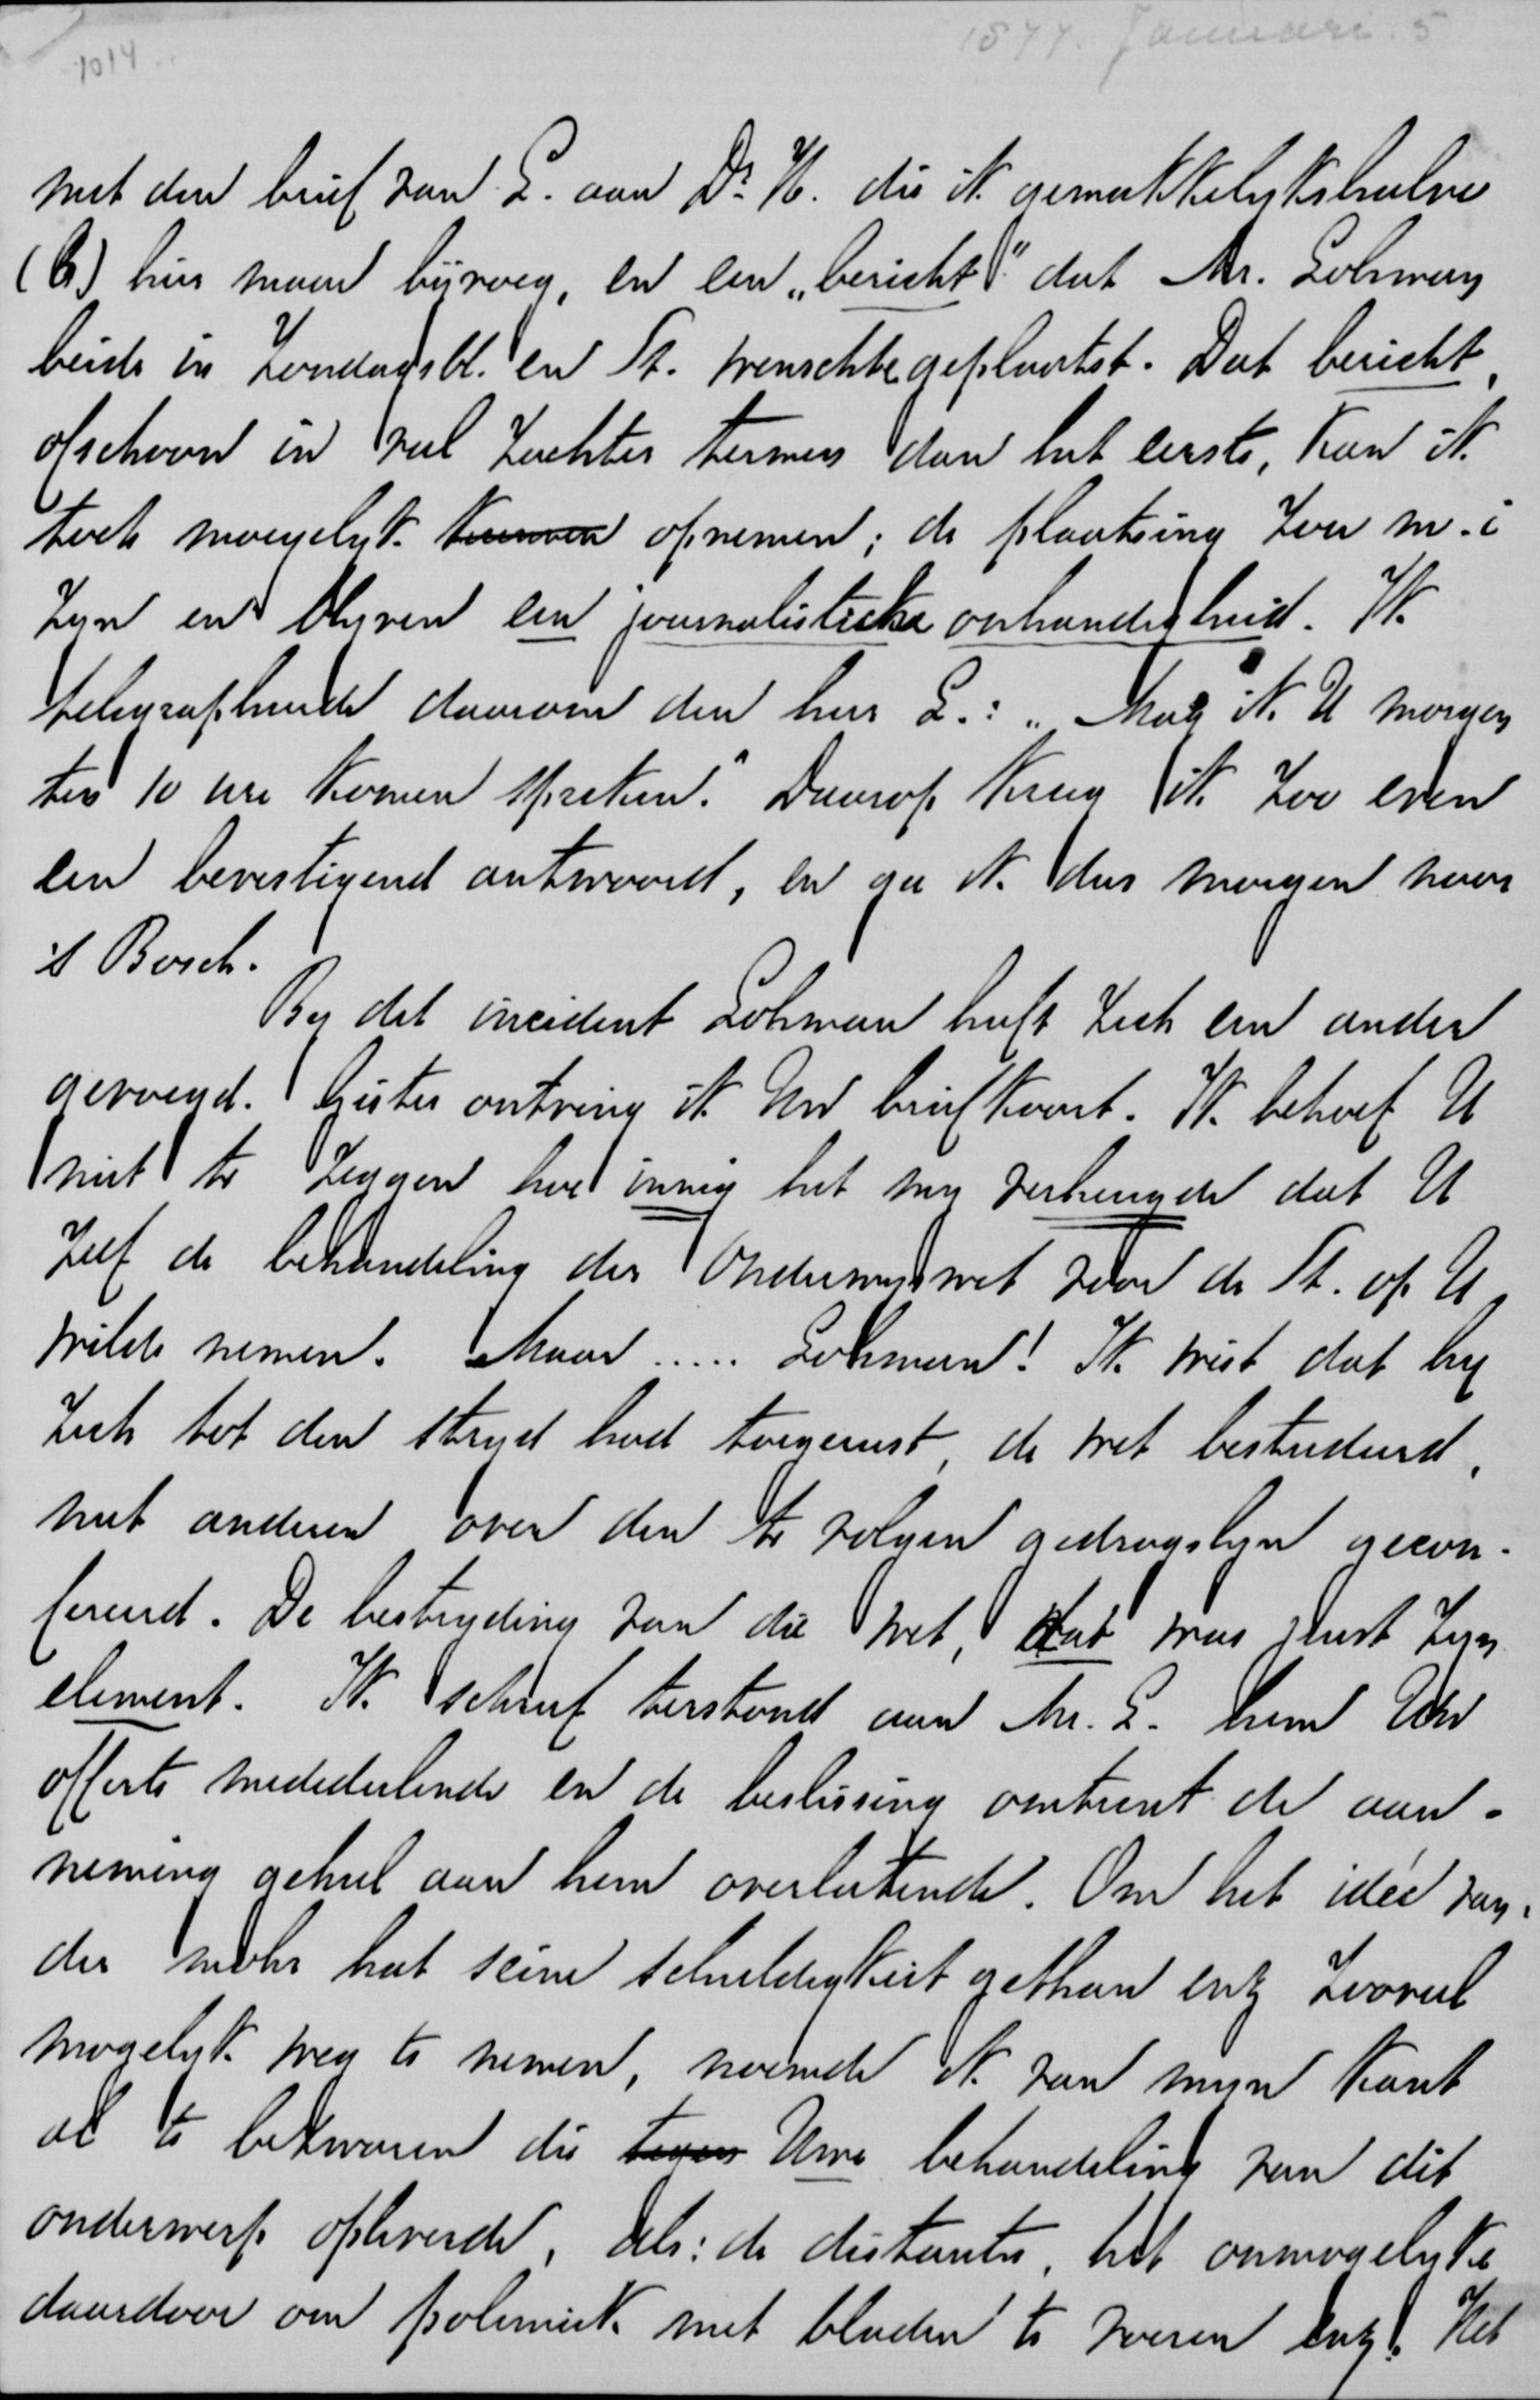 1014
1877. Januari. 5
met den brief van L. aan Dr. K. die ik gemakkelykshalve
(b) hier maar byvoeg, en een „bericht" dat Mr. Lohman
beide in Zondagsbl. en St. wenschte geplaatst. Dat bericht,
ofschoon in veel zachter termen dan het eerste, kan ik
toch moeyelyk kunnen opnemen; de plaatsing zou m.i
zyn en blyven een journalistieke onhandigheid. Ik
telegrapheerde daarom den heer L.: „Mag ik U morgen
ten 10 ure komen spreken." Daarop kreeg ik zoo even
een bevestigend antwoord, en ga ik dus morgen naar
's Bosch.
By dit incident Lohman heeft zich een ander
gevoegd. Gister ontving ik Uw briefkaart. Ik behoef U
niet te zeggen hoe innig het my verheugde dat U
zelf de behandeling der Onderwyswet voor de St. op U
wilde nemen. Maar ..... Lohman! Ik wist dat hy
zich tot den stryd had toegerust, de wet bestudeerd,
met anderen over den te volgen gedragslyn gecon-
fereerd. De bestryding van die wet, dat was juist zyn
element. Ik schreef terstond aan Mr. L. hem Uw
offerte mededeelende en de beslissing omtrent de aan-
neming geheel aan hem overlatende. Om het idée van:
der mohr hat seine schuldigkeit gethan enz zooveel
mogelyk weg te nemen, noemde ik van myn kant
al de bezwaren die tegen Uwe behandeling van dit
onderwerp opleverde, als: de distantie, het onmogelyke
daardoor om polemiek met bladen te voeren enz. Het